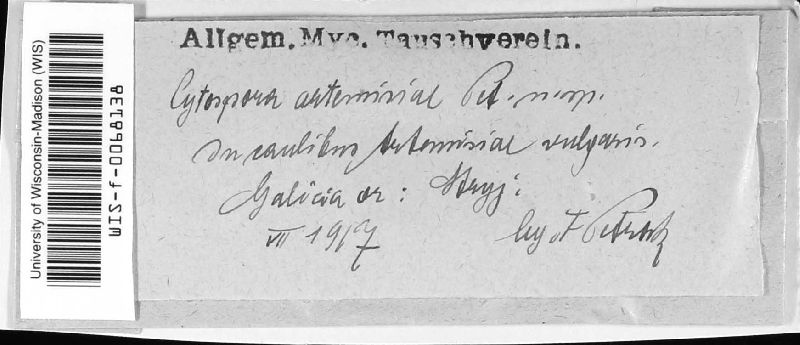 University of Wisconsin-Madison (WIS)
WIS-f-0068138
Allgem. Myc. Tauschverein.
Cytospora artemisiae Pet. n. sp.
In caulibus Artemisiae vulgaris.
Galicia or: Stryj.
VII 1917
leg. F Petrak